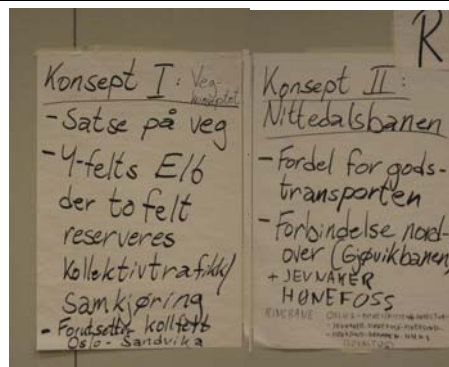 R
Konsept I: Veg-
konseptet
- Satse på veg
- 4-felts E16
der to felt
reserveres
kollektivtrafikk/
samkjøring
- Forutsetter kollfelt
Oslo - Sandvika
Konsept II:
Nittedalsbanen
- Fordel for gods-
transporten
- Forbindelse nord-
over (Gjøvikbanen)
+ JEVNAKER
HØNEFOSS
RINGBANE